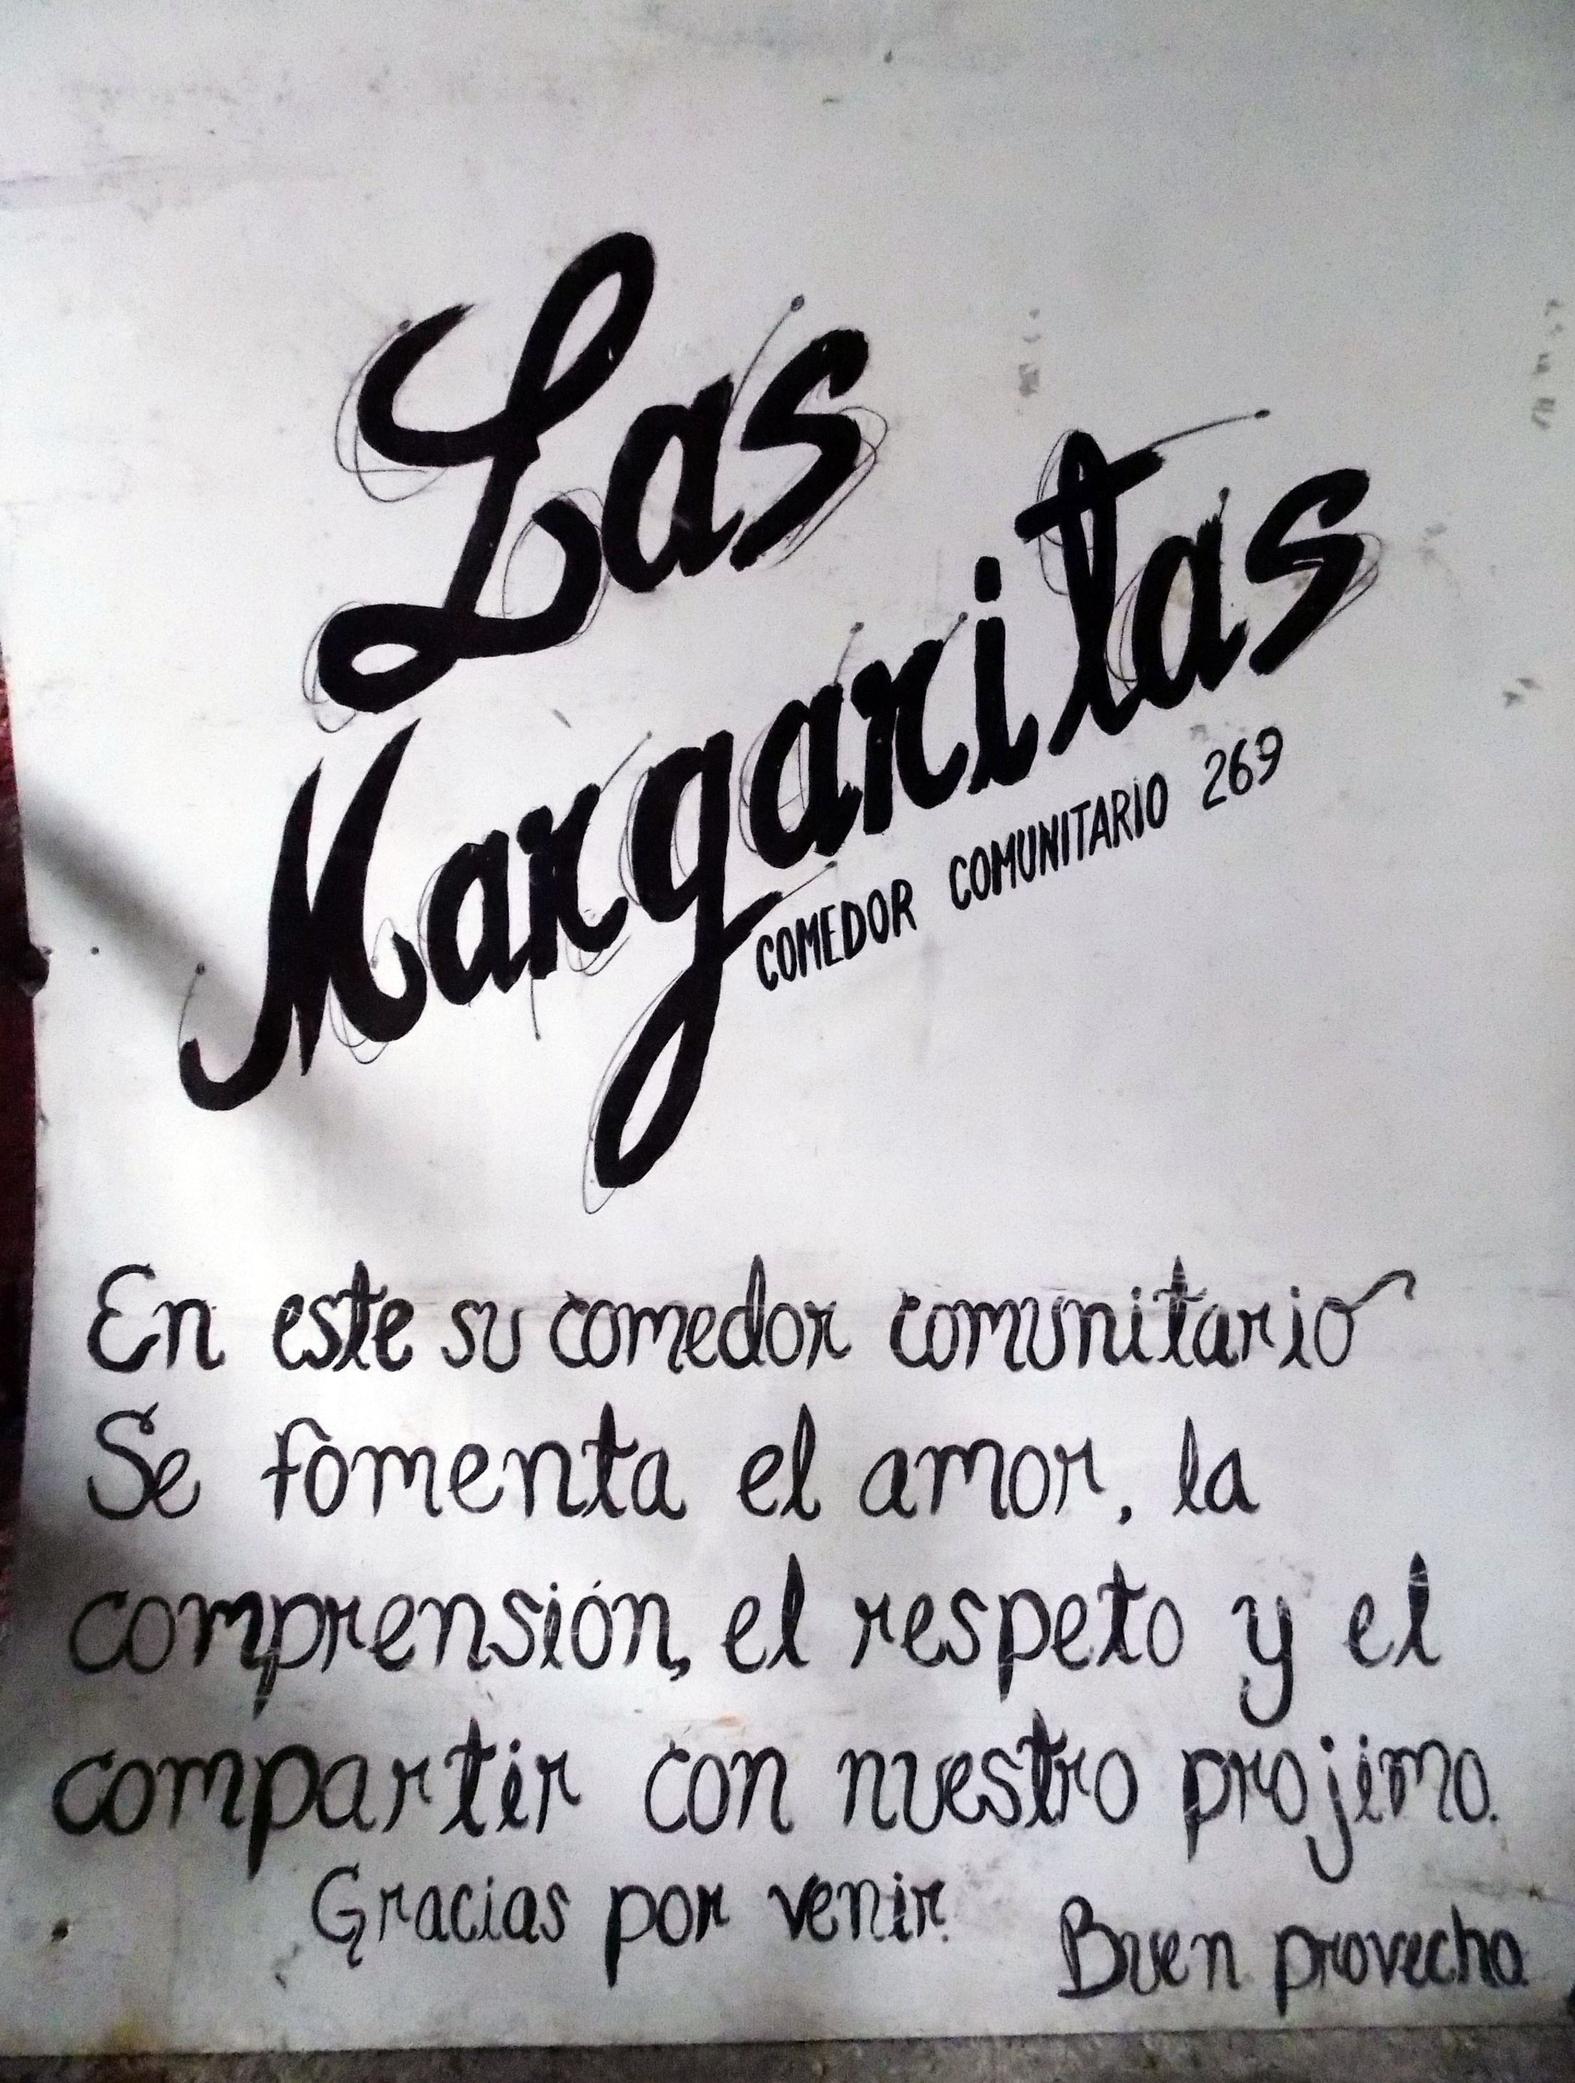 Las
Margaritas
COMEDOR COMUNITARIO 269
En este su comedor comunitario
Se fomenta el amor, la
comprensión, el respeto y el
compartir con nuestro projimo.
Gracias por venir.
Buen provecho.